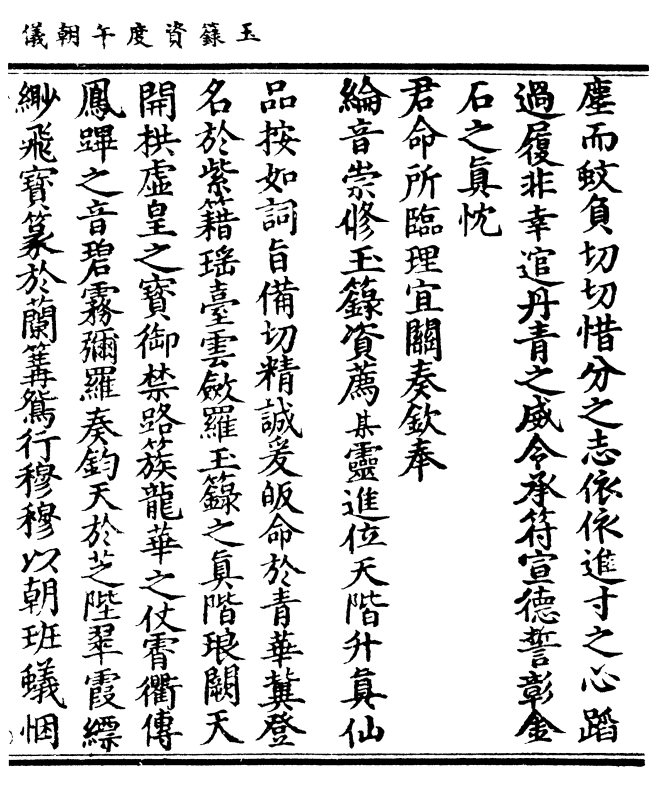 玉籙資度午朝儀
塵而蚊負切切惜分之志依依進寸之心蹈
過履非幸逭丹青之威令承符宣德誓彰金
石之眞忱
君命所臨理宜關奏欽奉
綸音崇修玉籙資薦某靈進位天階升眞仙
品按如詞旨備切精誠爰皈命於青華冀登
名於紫籍瑤臺雲斂羅玉籙之眞階琅闕天
開拱虛皇之寶御禁路簇龍華之仗霄衢傳
鳳蹕之音碧霧彌羅奏鈞天於芝陛翠霞縹
緲飛寶篆於蘭篝鴛行穆穆以朝班蟻悃